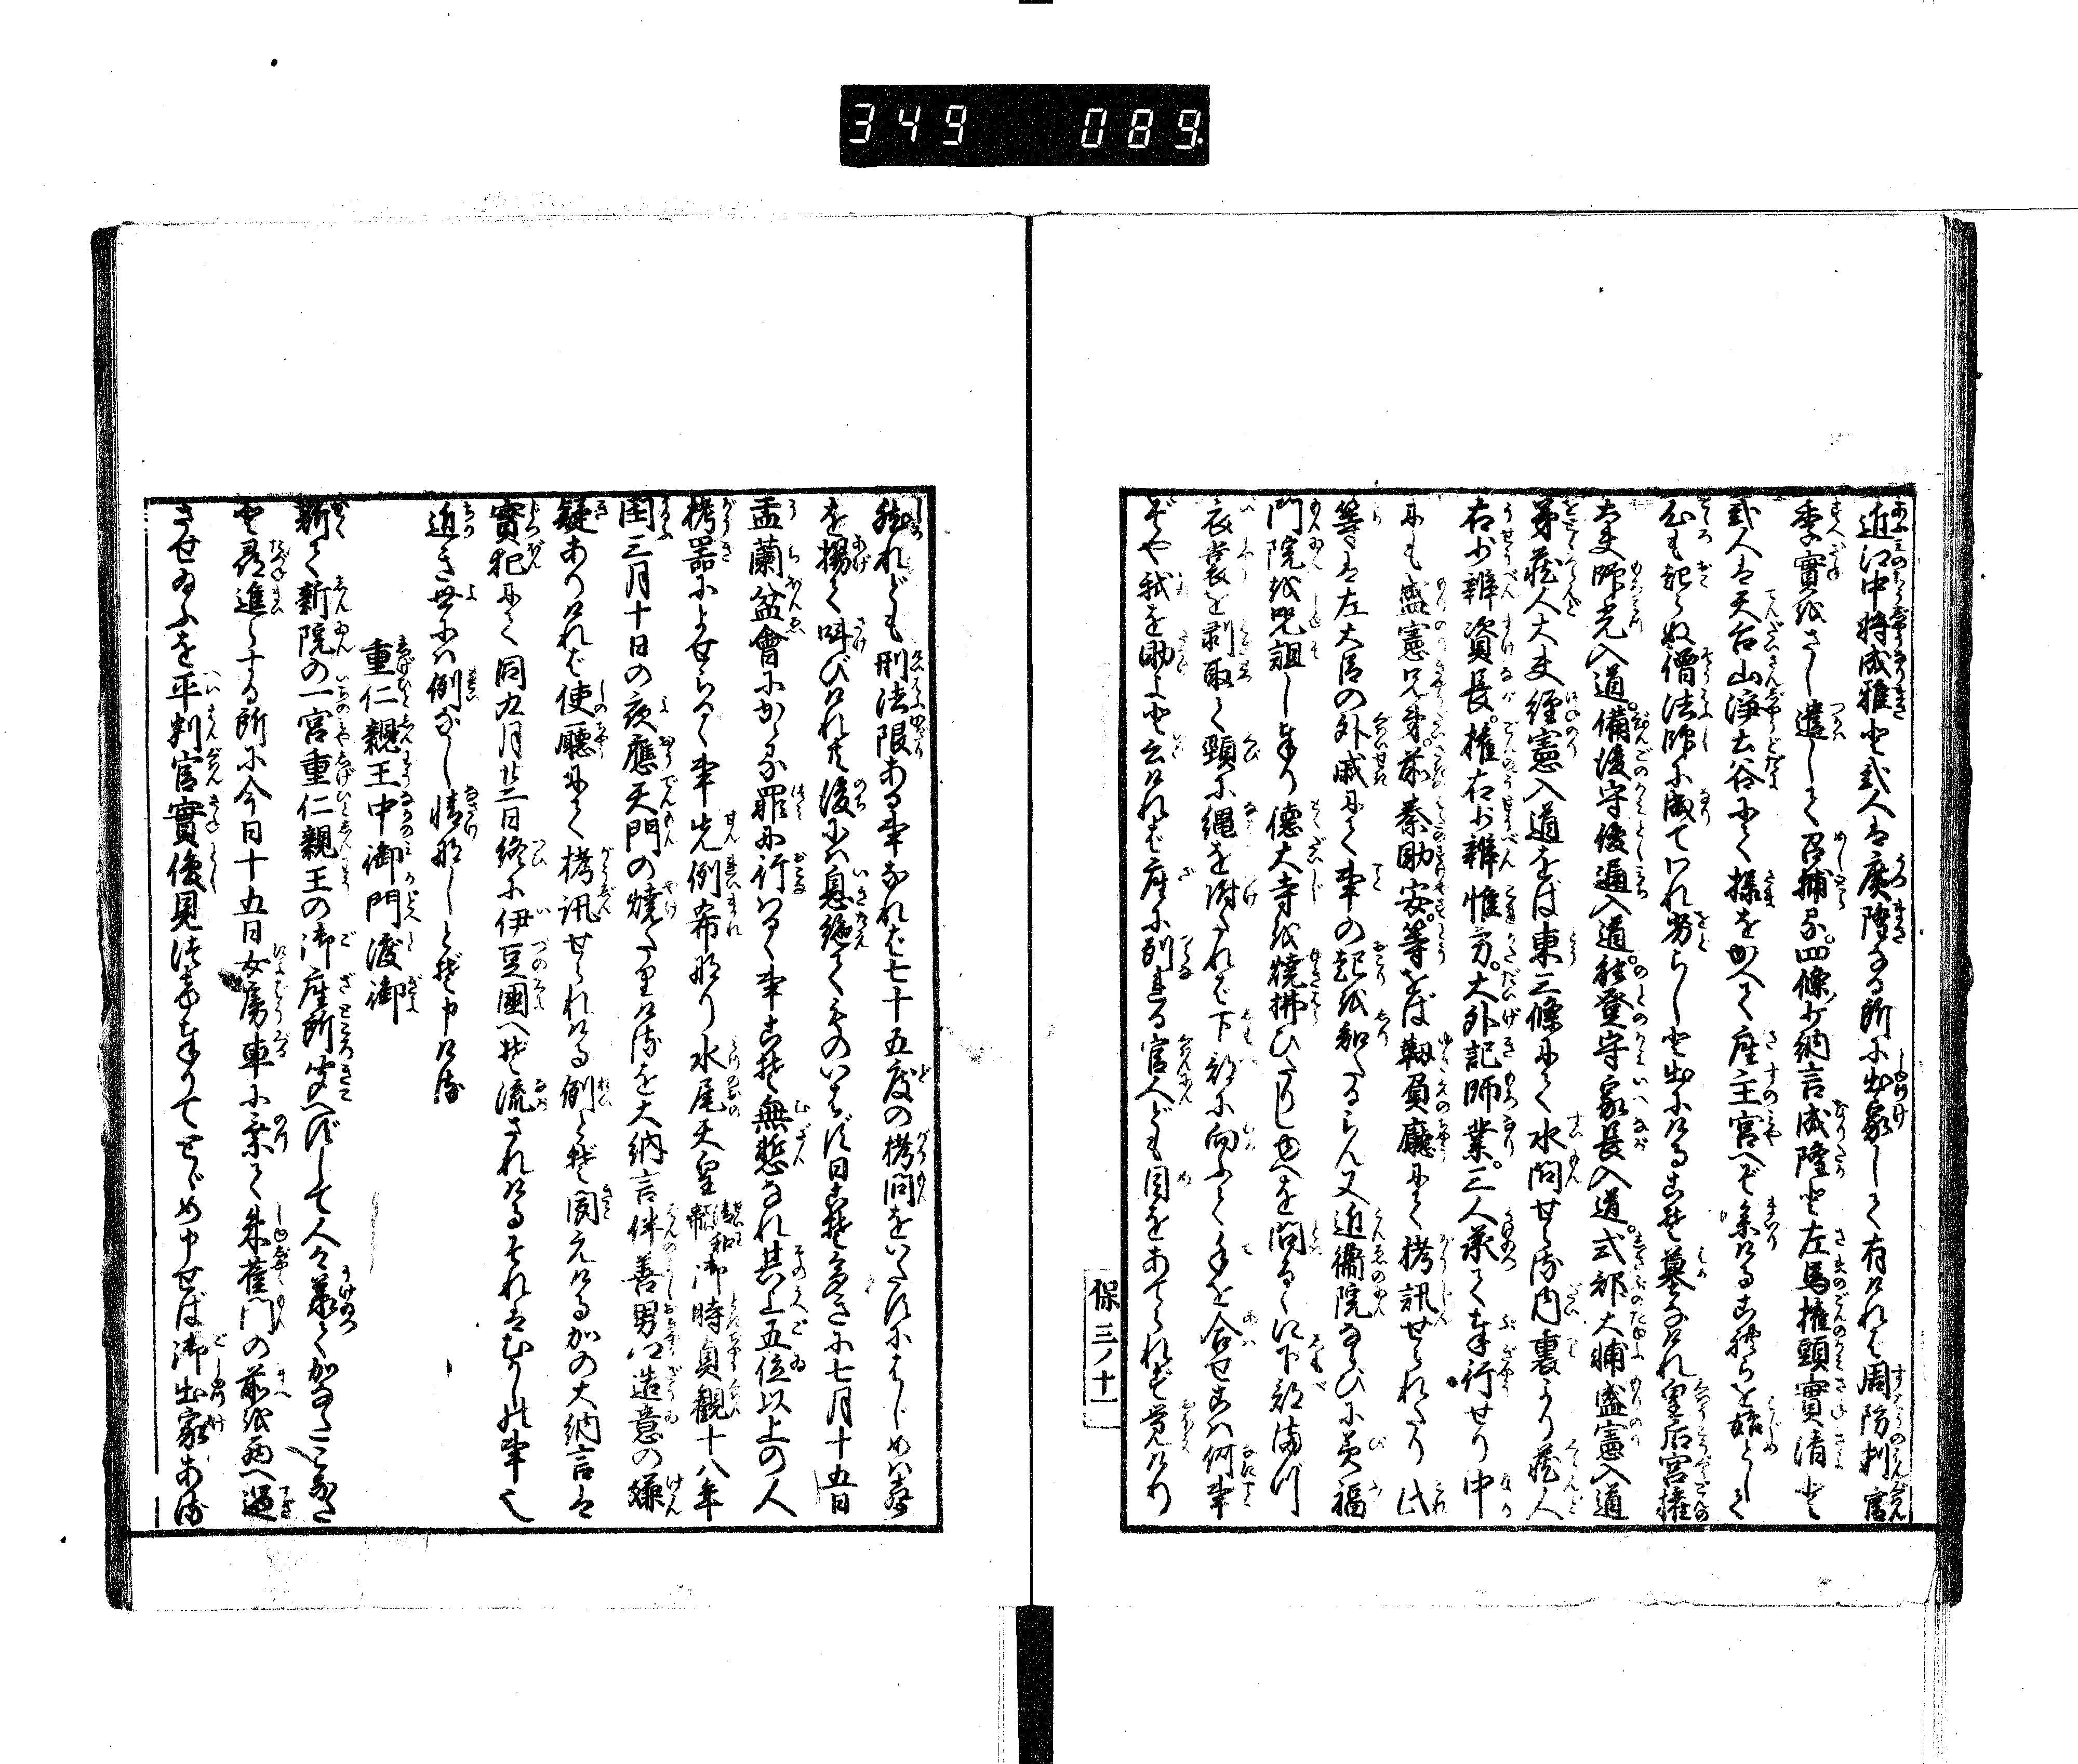 349 089
近江中将成雅と弐人は廣隆なる所に出家して有けれは周防判官
季實をさし遣して召捕る。四條少納言成隆と左馬権頭實清と
弐人は天台山浄土谷にて様をかへて座主宮へぞ参ける
心も起らぬ僧法師に成てけれ皇后宮権
大夫師光入道。備後守俊通入道。能登守家長入道。式部大輔盛憲入道
弟蔵人大夫經憲入道をば東三條にて水問せらる内裏より蔵人
右少辨資長。権右少辨惟方。大外記師業。三人承て奉行せり中
にも盛憲兄弟。前秦助安。等をば靱負廳にて拷訊せられたり此
等は左大臣の外戚にて事の起を知たるらん又近衛院ならびに美福
門院を咒詛し奉り徳大寺を焼拂ひたりしゆへを問るゝに下部
衣裳を剥取て頸に縄を付たれば下部に向ふて手を合せこは何事
ぞや我を助よと云ければ座に列れる官人ども目をあてられず覚けり
保三ノ十一
然れども刑法限ある事なれば七十五度の拷問をいたすにはじめは声
を揚て叫びけれ共後には息絶てものいはず日こそ多きに七月十五日
盂蘭盆會にかゝる罪に行はるゝ事こそ無慙なれ其上五位以上の人
拷器によせらるゝ事先例希なり水尾天皇清和帝御時貞観十八年
閏三月十日の夜應天門の焼たりけるを大納言伴善男が造意の嫌
疑ありければ使廳にて拷訊せられける例とぞ聞えけるかの大納言は
實犯にて同九月廿二日終に伊豆國へぞ流されけるそれはむかしの事也
近き世には例なし情なしとぞ申ける
重仁親王中御門渡御
斯て新院の一宮重仁親王の御座所聞へずして人々
と尋進らする所に今日十五日女房車に乗て朱雀門の前を西へ過
させ給ふを平判官實俊見つけ奉りてとゞめ申せば御出家ある